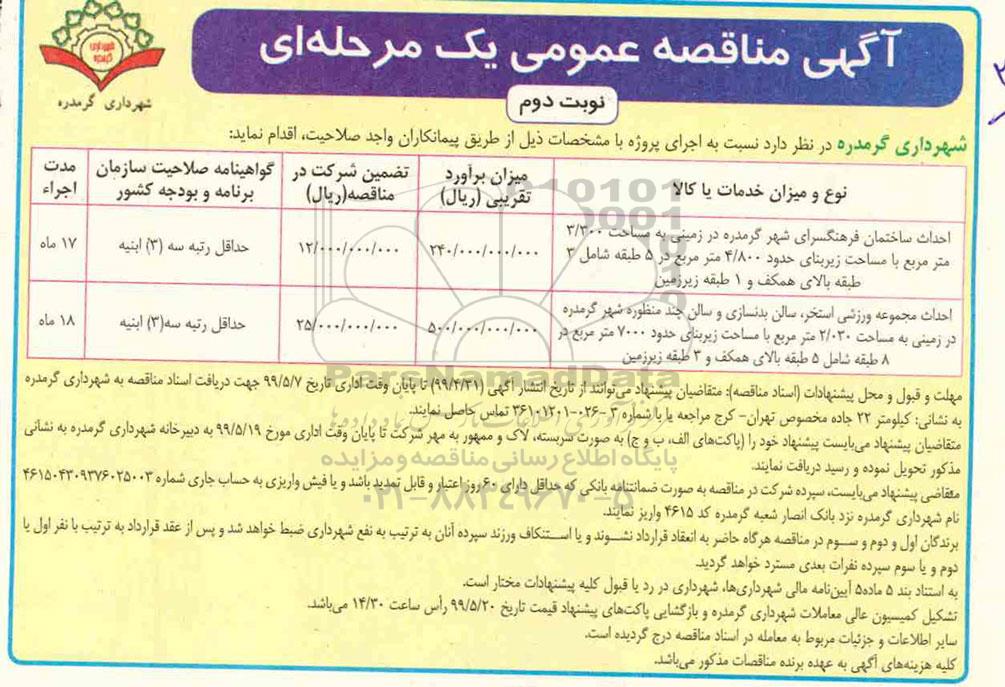 آگهی مناقصه عمومی یک مرحله‌ای
شهرداری گرمدره
نوبت دوم
شهرداری گرمدره در نظر دارد نسبت به اجرای پروژه با مشخصات ذیل از طریق پیمانکاران واجد صلاحیت، اقدام نماید:
نوع و میزان خدمات یا کالا
میزان برآورد تقریبی (ریال)
تضمین شرکت در مناقصه(ریال)
گواهینامه صلاحیت سازمان برنامه و بودجه کشور
مدت اجراء
احداث ساختمان فرهنگسرای شهر گرمدره در زمینی به مساحت ۳/۳۰۰
متر مربع با مساحت زیربنای حدود ۴/۸۰۰ متر مربع در ۵ طبقه شامل ۳
طبقه بالای همکف و ۱ طبقه زیرزمین
۲۴۰/۰۰۰/۰۰۰/۰۰۰
۱۲/۰۰۰/۰۰۰/۰۰۰
حداقل رتبه سه (۳) ابنیه
۱۷ ماه
احداث مجموعه ورزشی استخر، سالن بدنسازی و سالن چند منظوره شهر گرمدره
در زمینی به مساحت ۲/۰۳۰ متر مربع با مساحت زیربنای حدود ۷۰۰۰ متر مربع در
۸ طبقه شامل ۵ طبقه بالای همکف و ۳ طبقه زیرزمین
۵۰۰/۰۰۰/۰۰۰/۰۰۰
۲۵/۰۰۰/۰۰۰/۰۰۰
حداقل رتبه سه(۳) ابنیه
۱۸ ماه
مهلت و قبول و محل پیشنهادات (اسناد مناقصه): متقاضیان پیشنهاد می‌توانند از تاریخ انتشار آگهی (۹۹/۴/۳۱) تا پایان وقت اداری تاریخ ۹۹/۵/۷ جهت دریافت اسناد مناقصه به شهرداری گرمدره
به نشانی: کیلومتر ۲۲ جاده مخصوص تهران- کرج مراجعه یا با شماره ۳ -۰۲۶-۳۶۱۰۱۲۰۱ تماس حاصل نمایند.
متقاضیان پیشنهاد می‌بایست پیشنهاد خود را (پاکت‌های الف، ب و ج) به صورت سربسته، لاک و ممهور به مهر شرکت تا پایان وقت اداری مورخ ۹۹/۵/۱۹ به دبیرخانه شهرداری گرمدره به نشانی
مذکور تحویل نموده و رسید دریافت نمایند.
متقاضی پیشنهاد می‌بایست، سپرده شرکت در مناقصه به صورت ضمانتنامه بانکی که حداقل دارای ۶۰ روز اعتبار و قابل تمدید باشد و یا فیش واریزی به حساب جاری شماره ۴۶۱۵۰۴۳۰۹۳۷۶۰۲۵۰۰۳
نام شهرداری گرمدره نزد بانک انصار شعبه گرمدره کد ۴۶۱۵ واریز نمایند.
برندگان اول و دوم و سوم در مناقصه هرگاه حاضر به انعقاد قرارداد نشوند و یا استنکاف ورزند سپرده آنان به ترتیب به نفع شهرداری ضبط خواهد شد و پس از عقد قرارداد به ترتیب با نفر اول یا
دوم و یا سوم سپرده نفرات بعدی مسترد خواهد گردید.
به استناد بند ۵ ماده۵ آیین‌نامه مالی شهرداری‌ها، شهرداری در رد یا قبول کلیه پیشنهادات مختار است.
تشکیل کمیسیون عالی معاملات شهرداری گرمدره و بازگشایی پاکت‌های پیشنهاد قیمت تاریخ ۹۹/۵/۲۰ رأس ساعت ۱۴/۳۰ می‌باشد.
سایر اطلاعات و جزئیات مربوط به معامله در اسناد مناقصه درج گردیده است.
کلیه هزینه‌های آگهی به عهده برنده مناقصات مذکور می‌باشد.
ParsNamadData
پایگاه اطلاع رسانی مناقصه و مزایده
۰۲۱-۸۸۳۴۹۶۷۰-۵